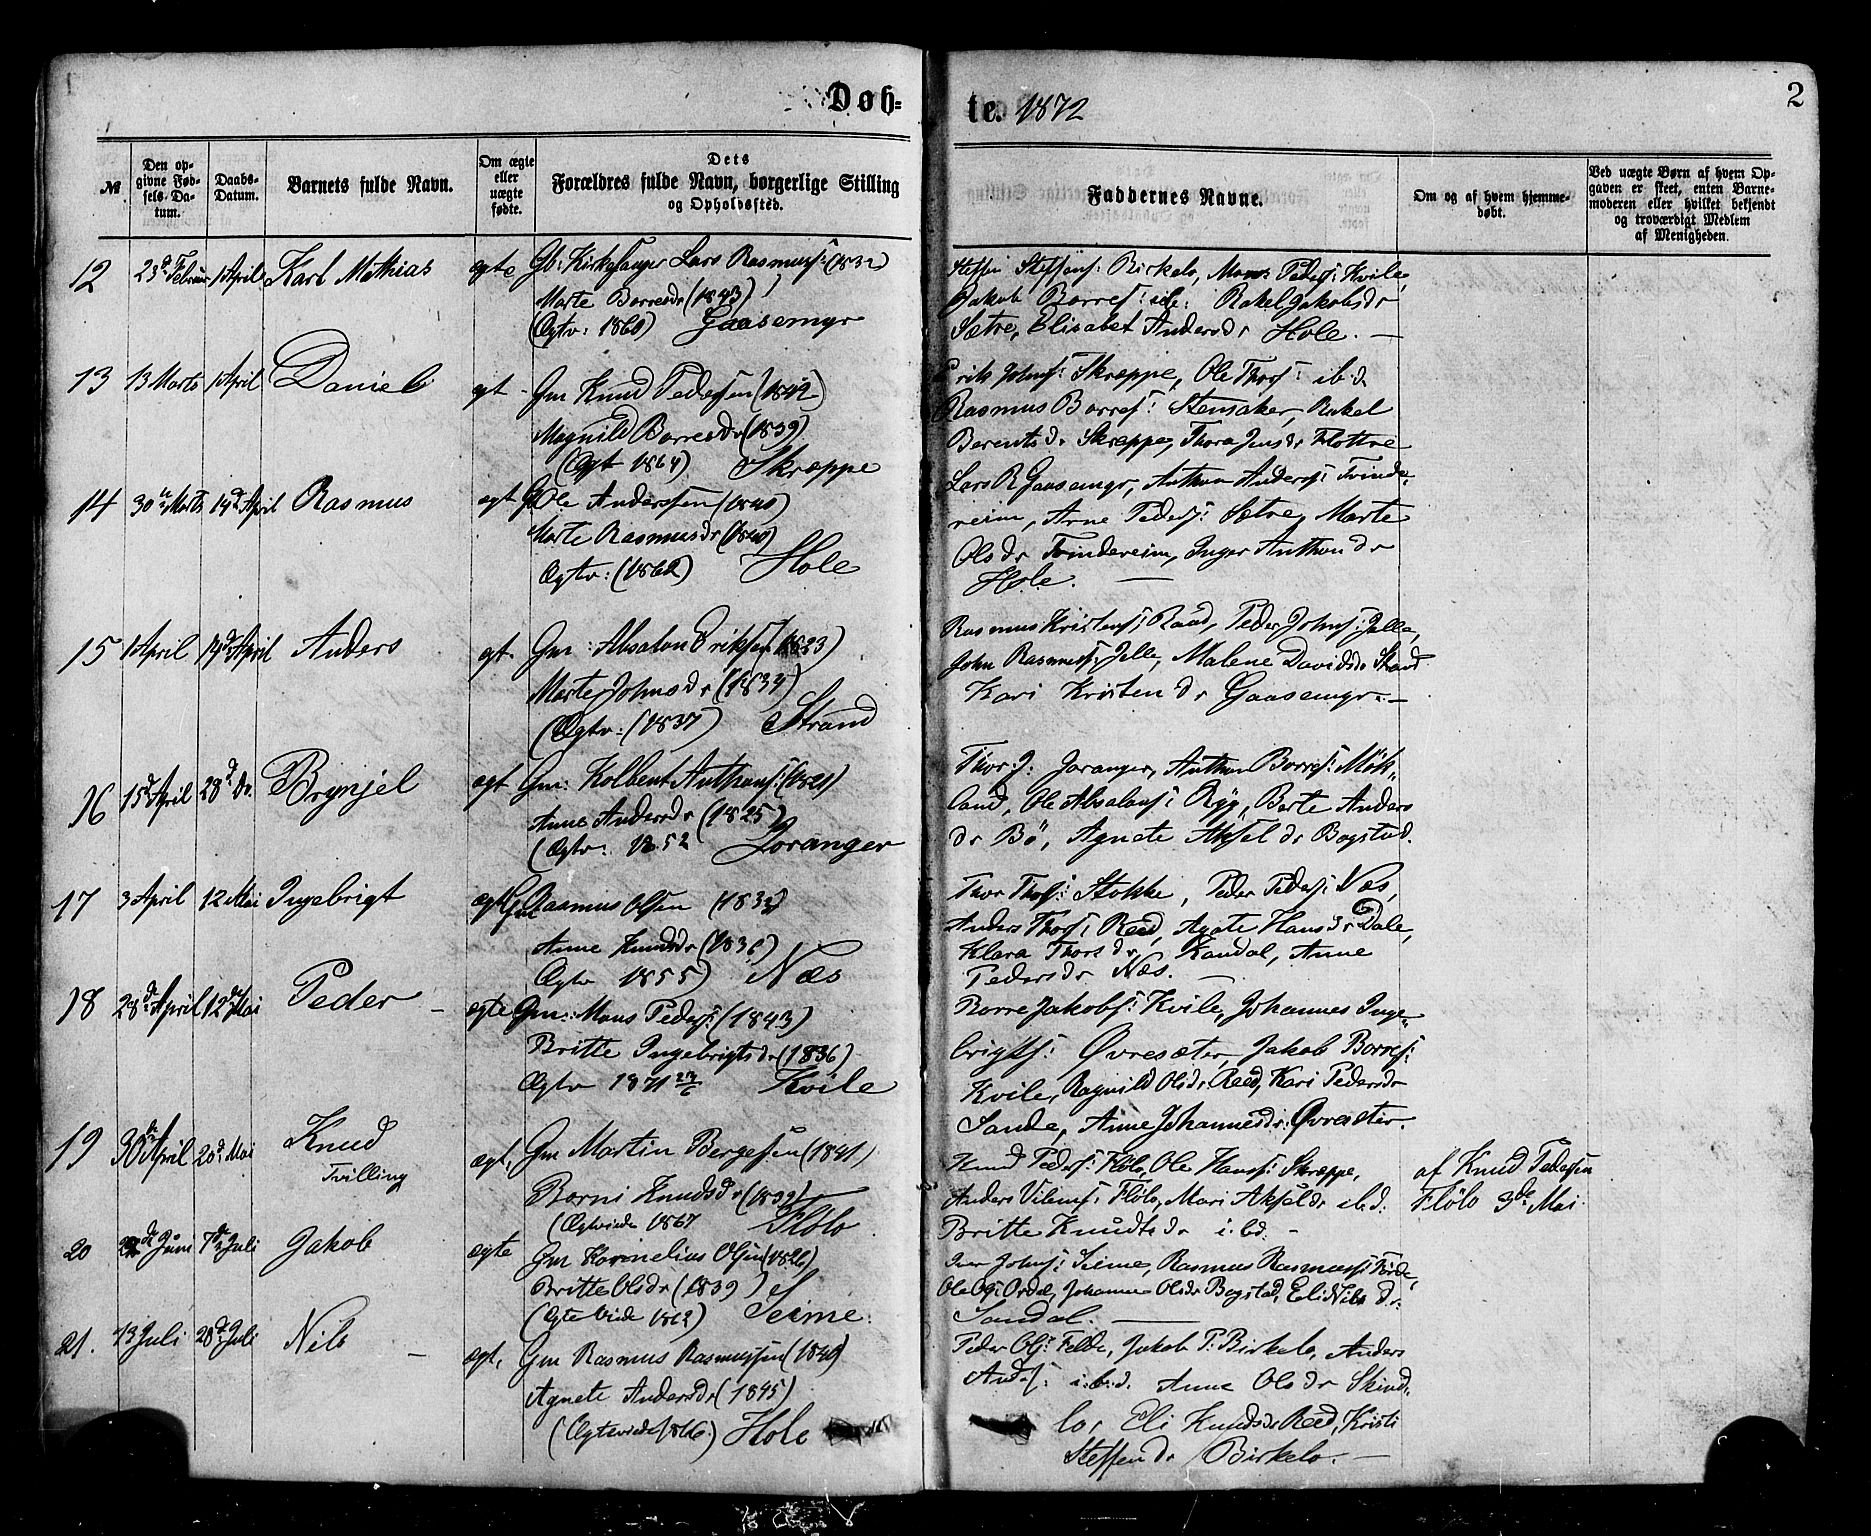 Døb=
te. 1872
2
№
Den op-
givne Fød-
sels-Da-
tum.
Daabs-
Datum.
Barnets fulde Navn.
Om ægte
eller
uægte
fødte.
Dets
Forældres fulde Navn, borgerlige Stilling
og Opholdssted.
Faddernes Navne.
Om og af hvem hjemme-
døbt.
Ved uægte Børn af hvem Op-
gaven er skeet, enten Barne-
moderen eller hvilket bekjendt
og troværdigt Medlem
af Menigheden.
12 23d Februar 1 April Karl Mathias ægte Gb: Kirkesanger Lars Rasmuss: (1832)
Marte Borresdr (1843)
(Ægtv: 1860) Gaasemyr
Steffen Steffens: Birkelo, Mons Peders: Kvile,
Jakob Borres: ib: Rakel Jakobsdr
Sætre, Elisabet Andersdr Hole. —
13 13 Marts 1 April Daniel ægt - Gm Knud Pedersen (1842)
Magnild Borresdr (1839)
(Ægt 1864) Skræppe
Erik Johns: Skræppe, Ole Thors: ibd.
Rasmus Borres: Stensaker, Rakel
Berentsdr Skræppe, Thora Jensdr Flottre
14 30te Marts 14d April Rasmus ægt Gm Ole Anderssen (1840)
Marte Rasmusdr (1840)
Ægtv: (1862) Hole
Lars R Gaasemyr, Anthon Anders: Tvinde-
reim, Arne Peders: Sætre, Marte
Olsdr Tvindereim, Inger Anthondr
Hole. —
15 1 April 14d April Anders ægt. Gm: Absalon Eriksen (1823)
Marte Johnsdr (1834)
(Ægtv: (1857) Strand
Rasmus Kristens: Raad, Peder Johns: Jelle,
John Rasmuss: Jelle, Malene Davidsdr Strand
Kari Kristendr Gaasemyr. —
16 15d April 28d do. Brynjel ægt Gm: Kolbent Anthons: (1821)
Anne Andersdr (1825)
(Ægtv: 1852 Loranger
Thor J: Joranger, Anthon Borres: Møk-
land, Ole Absalons: Ryg, Berte Anders
dr Bö, Agnete Aksel dr Bogstad.
17 3 April 12 Mai Ingebrigt ægt Gm Rasmus Olsen (1832)
Anne Knudsdr (1836)
Ægtv 1855) Næs
Thor Thors: Stokke, Peder Peders: Næs,
Anders Thors: Reed, Agate Hansdr Dale,
Klara Thorsdr, Kandal, Anne
Pedersdr Næs. —
18 28de April 12de Mai Peder - ægte Gm: Mons Peders: (1843)
Britte Ingebrigtsdr (1836)
Ægtv 1871 Kvile
Borre Jakobs: Kvile, Johannes Inge-
brigts: Øvresæter, Jakob Borres:
Kvile, Ragnild Olsdr Reed, Kari Pedersdr
Sande, Anne Johannesdr: Øvresæter.
19 30te April 20d Mai Knud
Tvilling
ægt, Gm Martin Bergesen (1841)
Borni Knudsdr (1839)
(Ægteviede 1867 Flölo
Knud Peders: Flölo, Ole Hanss: Skræppe,
Anders Vilems: Flölo, Mari Akseldr ibd.
Britte Knudtsdr ibd. -
af Knud Pedersen
Flölo 3de Mai.
20 de Juni 7de Juli Jakob ægte Gm Kornelius Olsen (1826)
Britte Olsdr (1839)
(Ægteviede 1862) Seime.
Iver Johns: Seime, Rasmus Rasmuss: Förde,
Ole Ols: Ordal, Johanne Olsdr Bogstad, Eli Nilsdr:
Sandal. —
21. 13 Juli 28de Juli Nils - ægt, Gm Rasmus Rasmussen (1840)
Agnete Andersdr (1845)
(Ægteviede 1866.) Hole
Peder Ols: Felde, Jakob P: Birkelo, Anders
Ands: i.b.d. Anne Olsdr Skind-
lo, Eli Knudsdr Reed, Kristi
Steffendr Birkelo. —